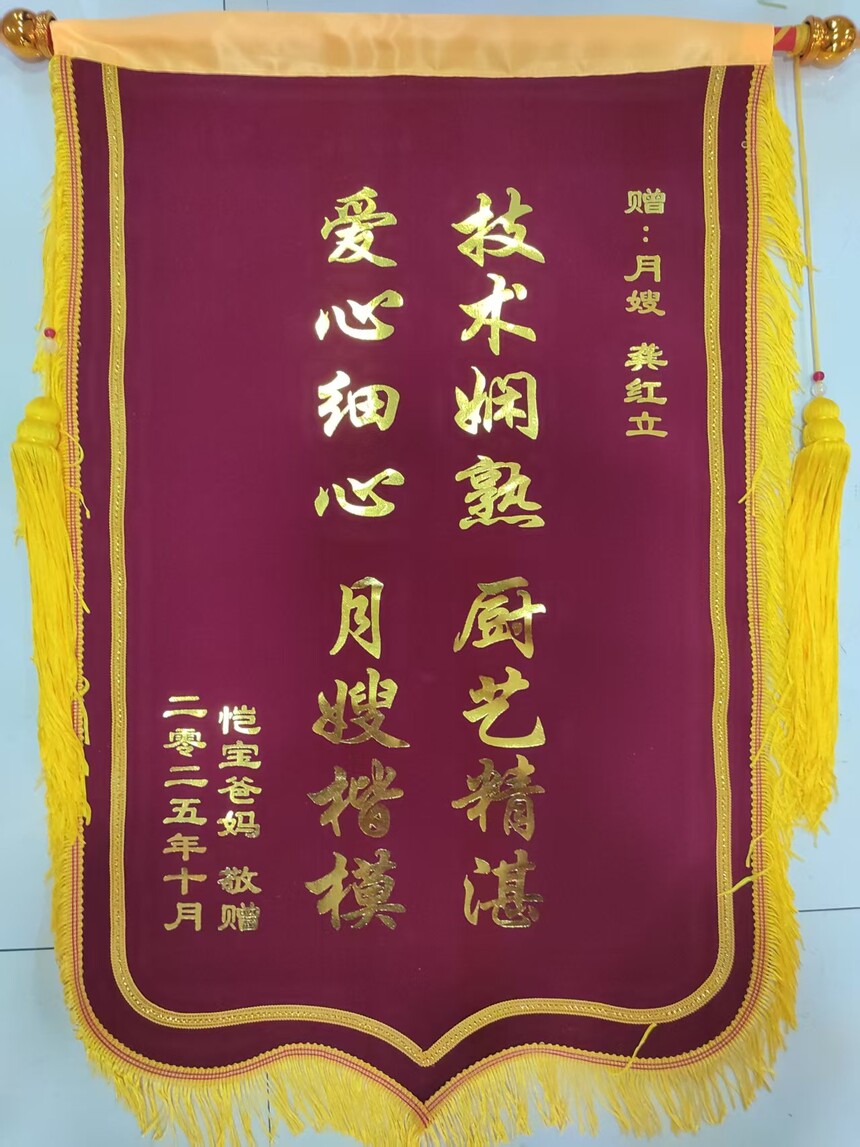 赠：月嫂 龚红立
技术娴熟 厨艺精湛
爱心细心 月嫂楷模
恺宝爸妈 敬赠
二零二五年十月